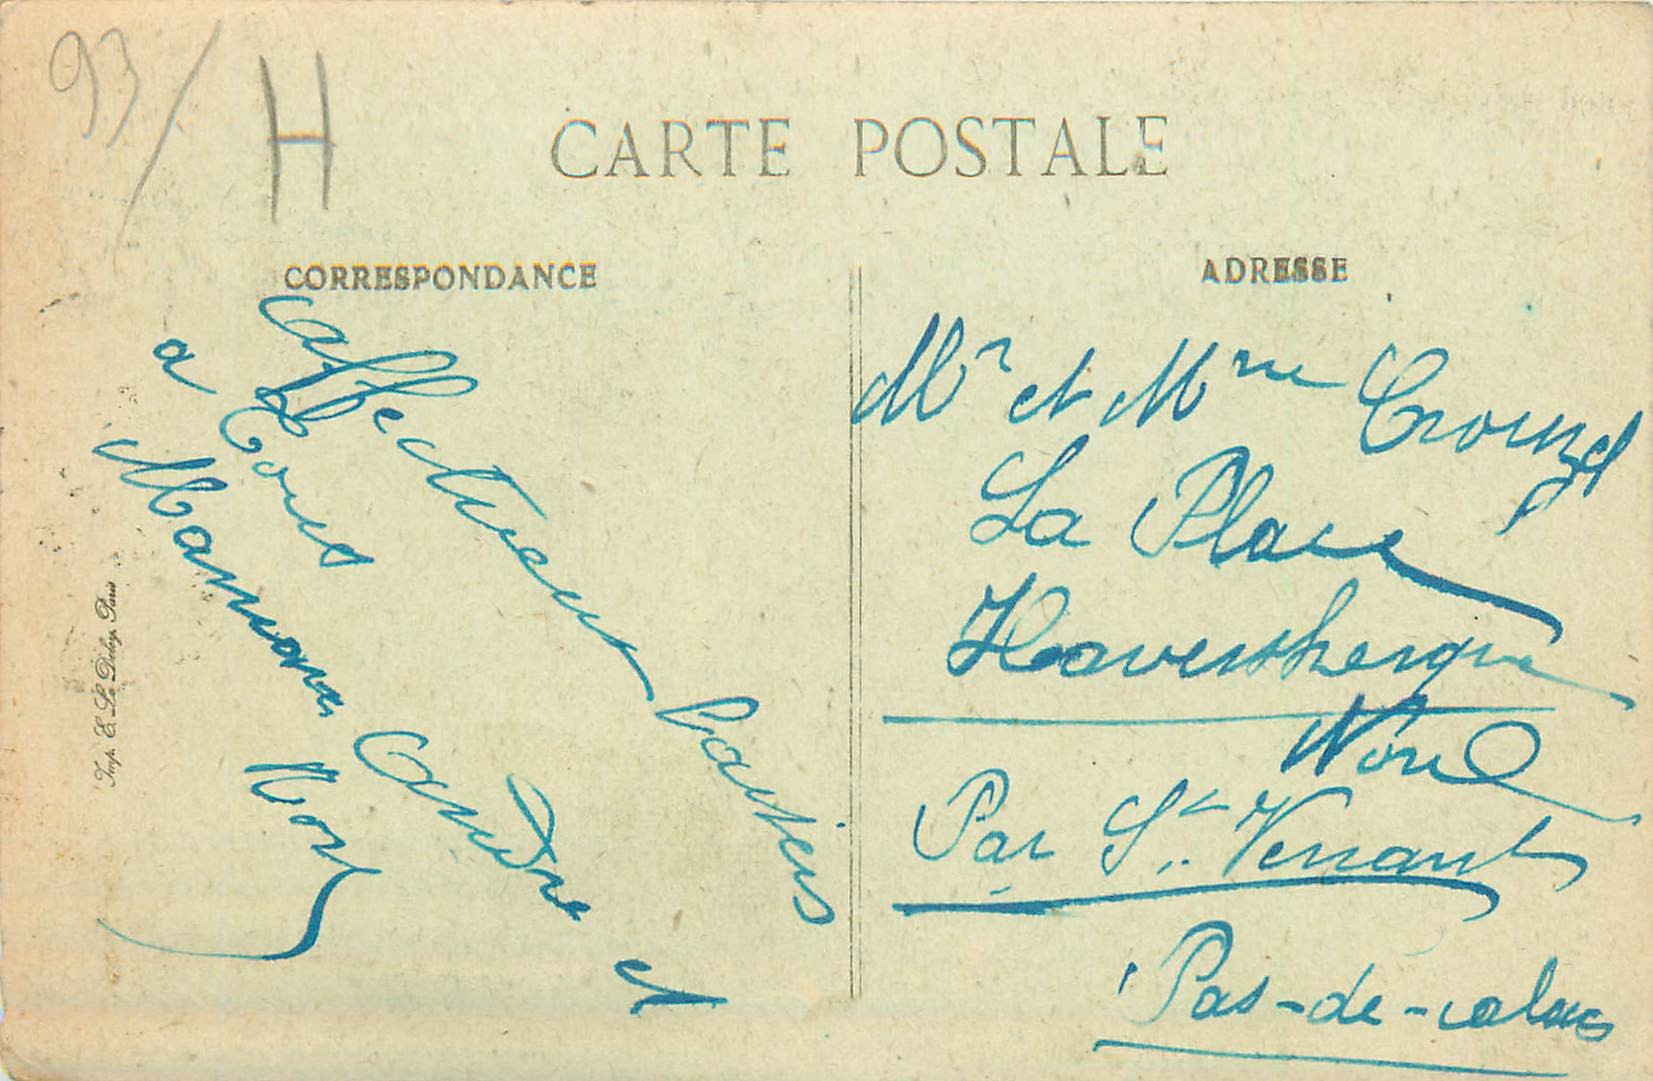 93/ H
CARTE POSTALE
CORRESPONDANCE
Affectueux baisers
a Tous
Maman André et
Imp. E. Le Deley, Paris
ADRESSE
Mr et Mme Crouzel
La Place
Haverskerque
Nord
Par St. Venant
Pas-de-calais